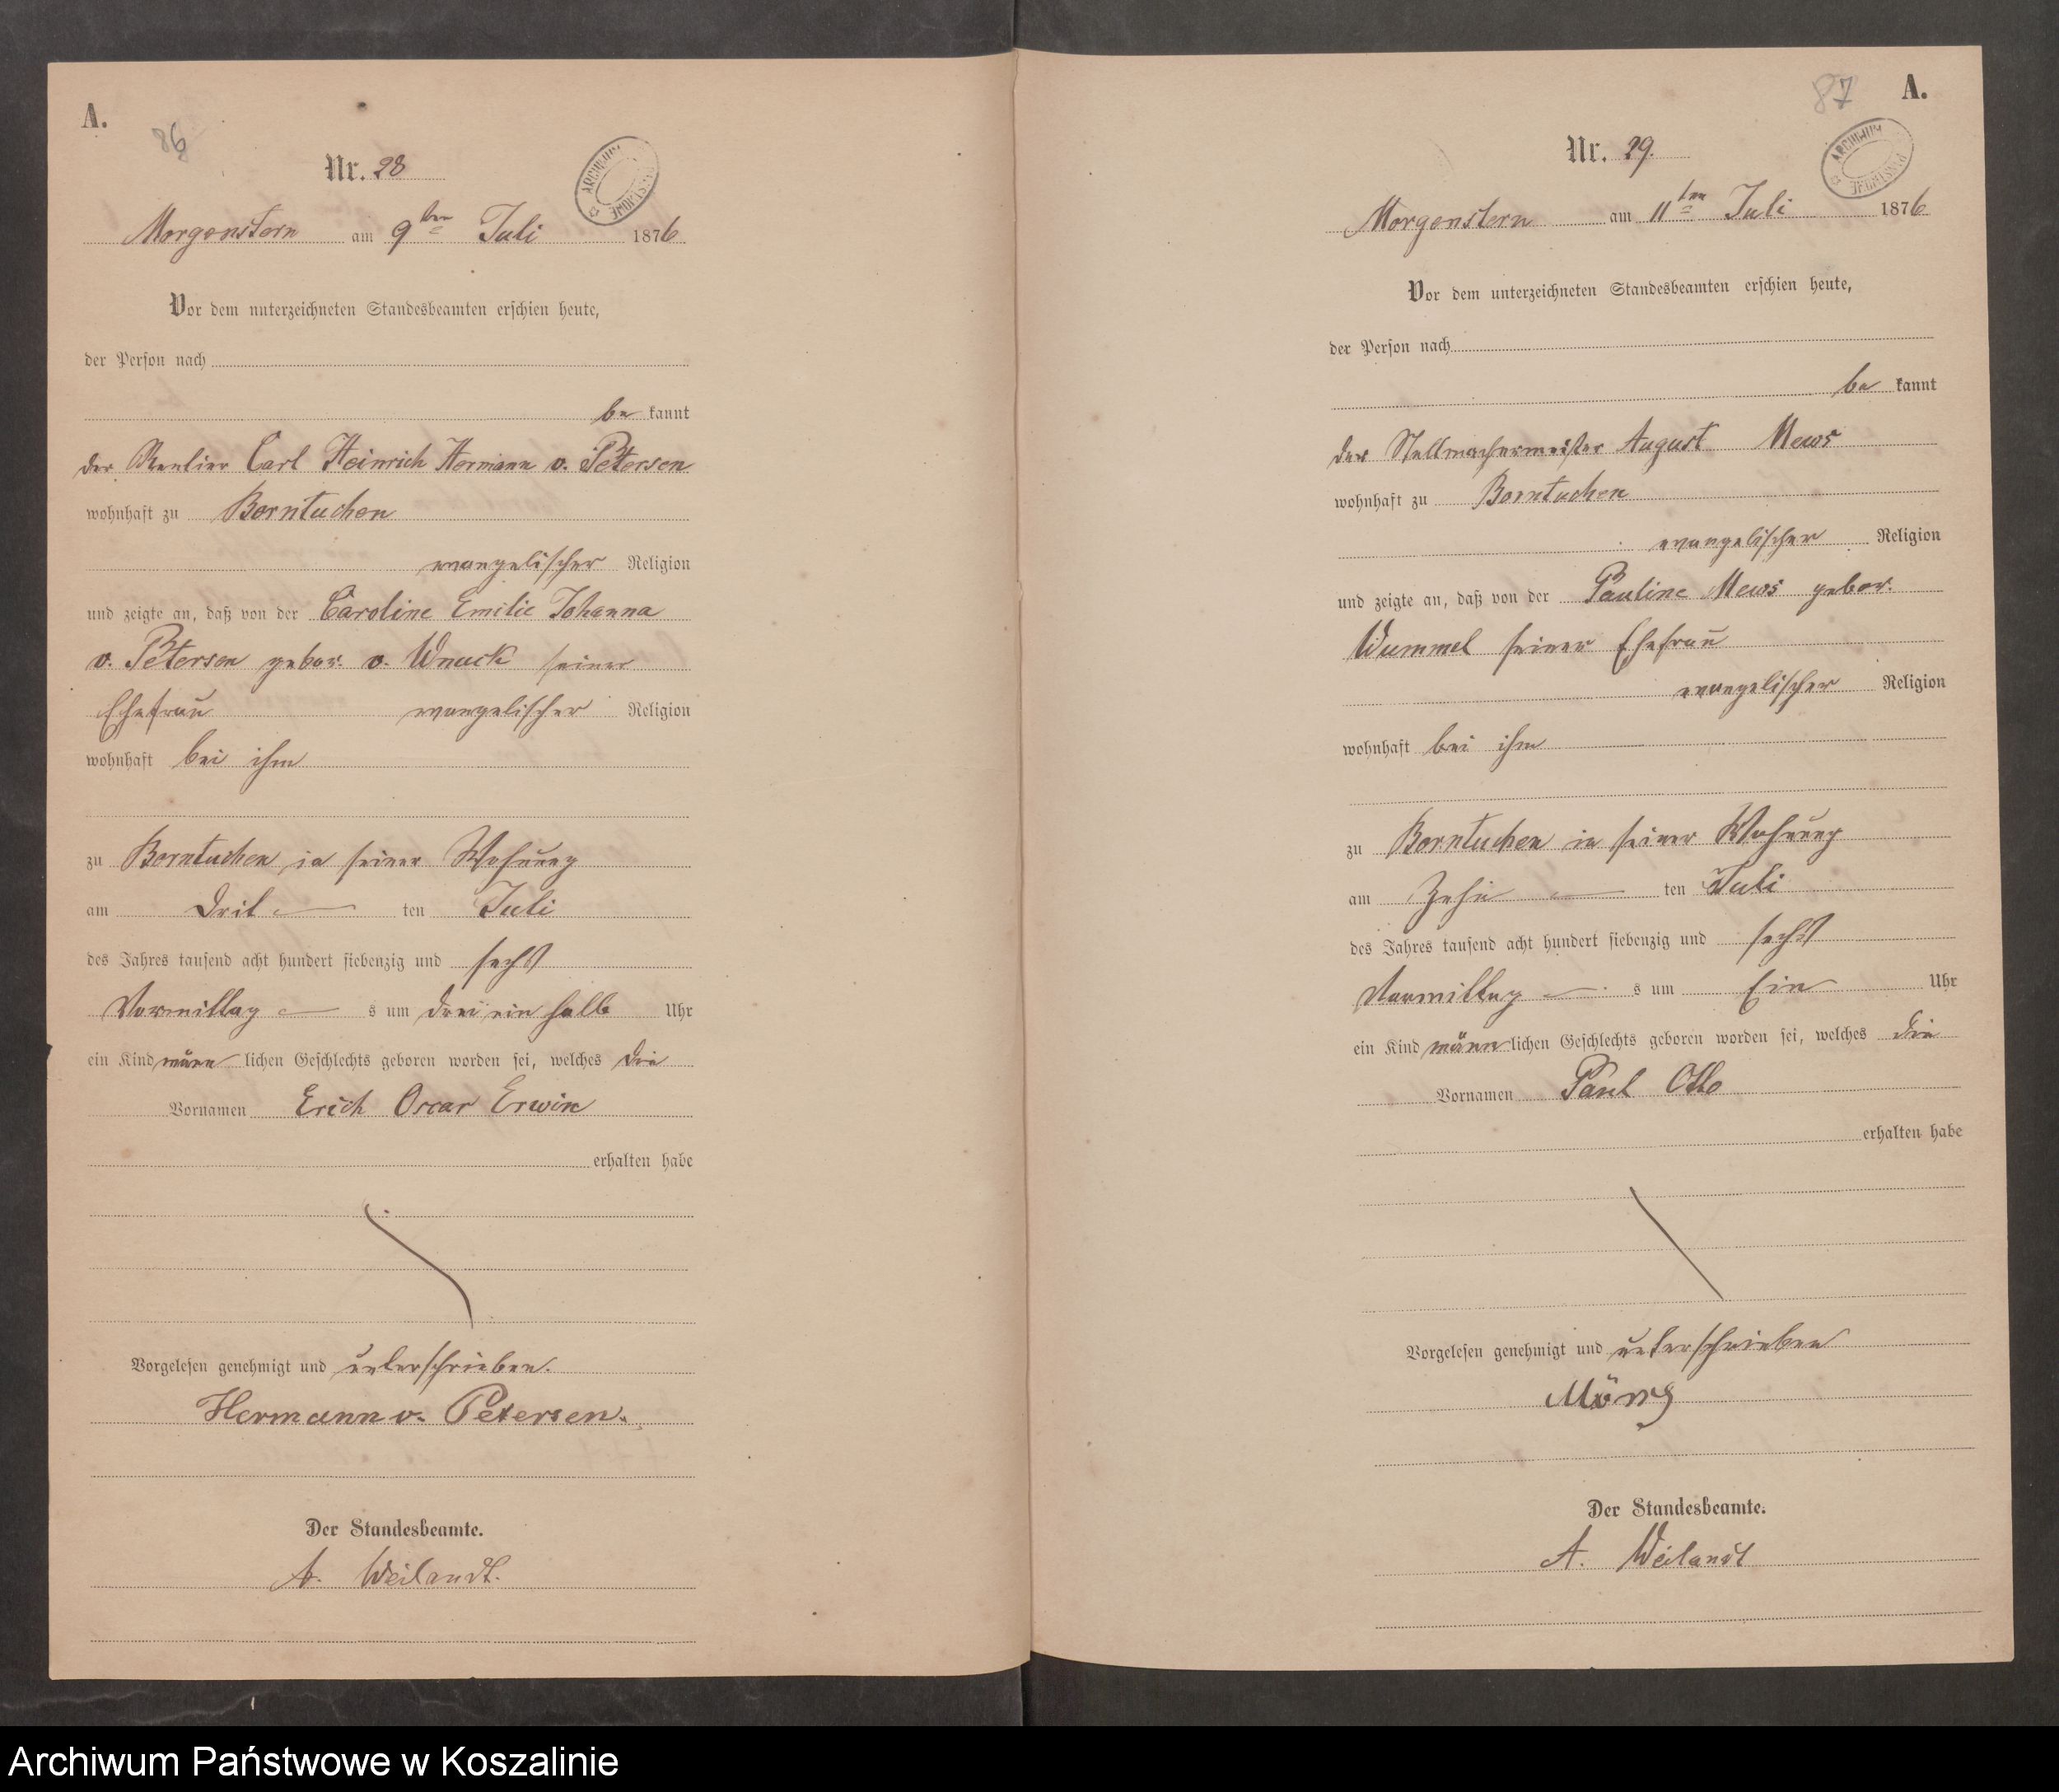 A.
86
Nr. 28
ARCHIWUM PAŃSTWOWE
Morgenstern am 9ten Juli 1876
Vor dem unterzeichneten Standesbeamten erschien heute,
der Person nach
be kannt
der Rentier Carl Heinrich Hermann v. Petersen
wohnhaft zu Borntuchen
evangelischer Religion
und zeigte an, daß von der Caroline Emilie Johanna
v. Petersen gebor. v. Wnuck seiner
Ehefrau evangelischer Religion
wohnhaft bei ihm
zu Borntuchen in seiner Wohnung
am Drit ten Juli
des Jahres tausend acht hundert siebenzig und sechs
Vormittag s um drei ein halb Uhr
ein Kind männ lichen Geschlechts geboren worden sei, welches die
Vornamen Erich Oscar Erwin
erhalten habe
Vorgelesen genehmigt und unterschrieben.
Hermann v. Petersen.
Der Standesbeamte.
A. Weilandt.
87
A.
Nr. 29.
ARCHIWUM PAŃSTWOWE
Morgenstern am 11ten Juli 1876
Vor dem unterzeichneten Standesbeamten erschien heute,
der Person nach
be kannt
der Stellmachermeister August Mews
wohnhaft zu Borntuchen
evangelischer Religion
und zeigte an, daß von der Pauline Mews gebor.
Wummel seiner Ehefrau
evangelischer Religion
wohnhaft bei ihm
zu Borntuchen in seiner Wohnung
am Zehn ten Juli
des Jahres tausend acht hundert siebenzig und sechs
Vormittag s um Ein Uhr
ein Kind männ lichen Geschlechts geboren worden sei, welches die
Vornamen Paul Otto
erhalten habe
Vorgelesen genehmigt und unterschrieben
Der Standesbeamte.
A. Weilandt
Archiwum Państwowe w Koszalinie